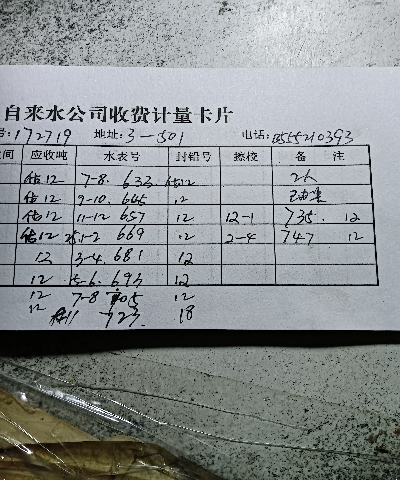 自来水公司收费计量卡片
号:172719 地址:3-501 电话:
间 应收吨 水表号 封铅号 擦校 备 注
估12 7-8. 633 估12 2人
估12 9-10. 645 12
估12 11-12 657 12 12-1 735. 12
估12 1-2 669 12 2-4 747 12
12 3-4. 681 12
12 5-6. 693 12
12 7-8 705 12
12 723. 18